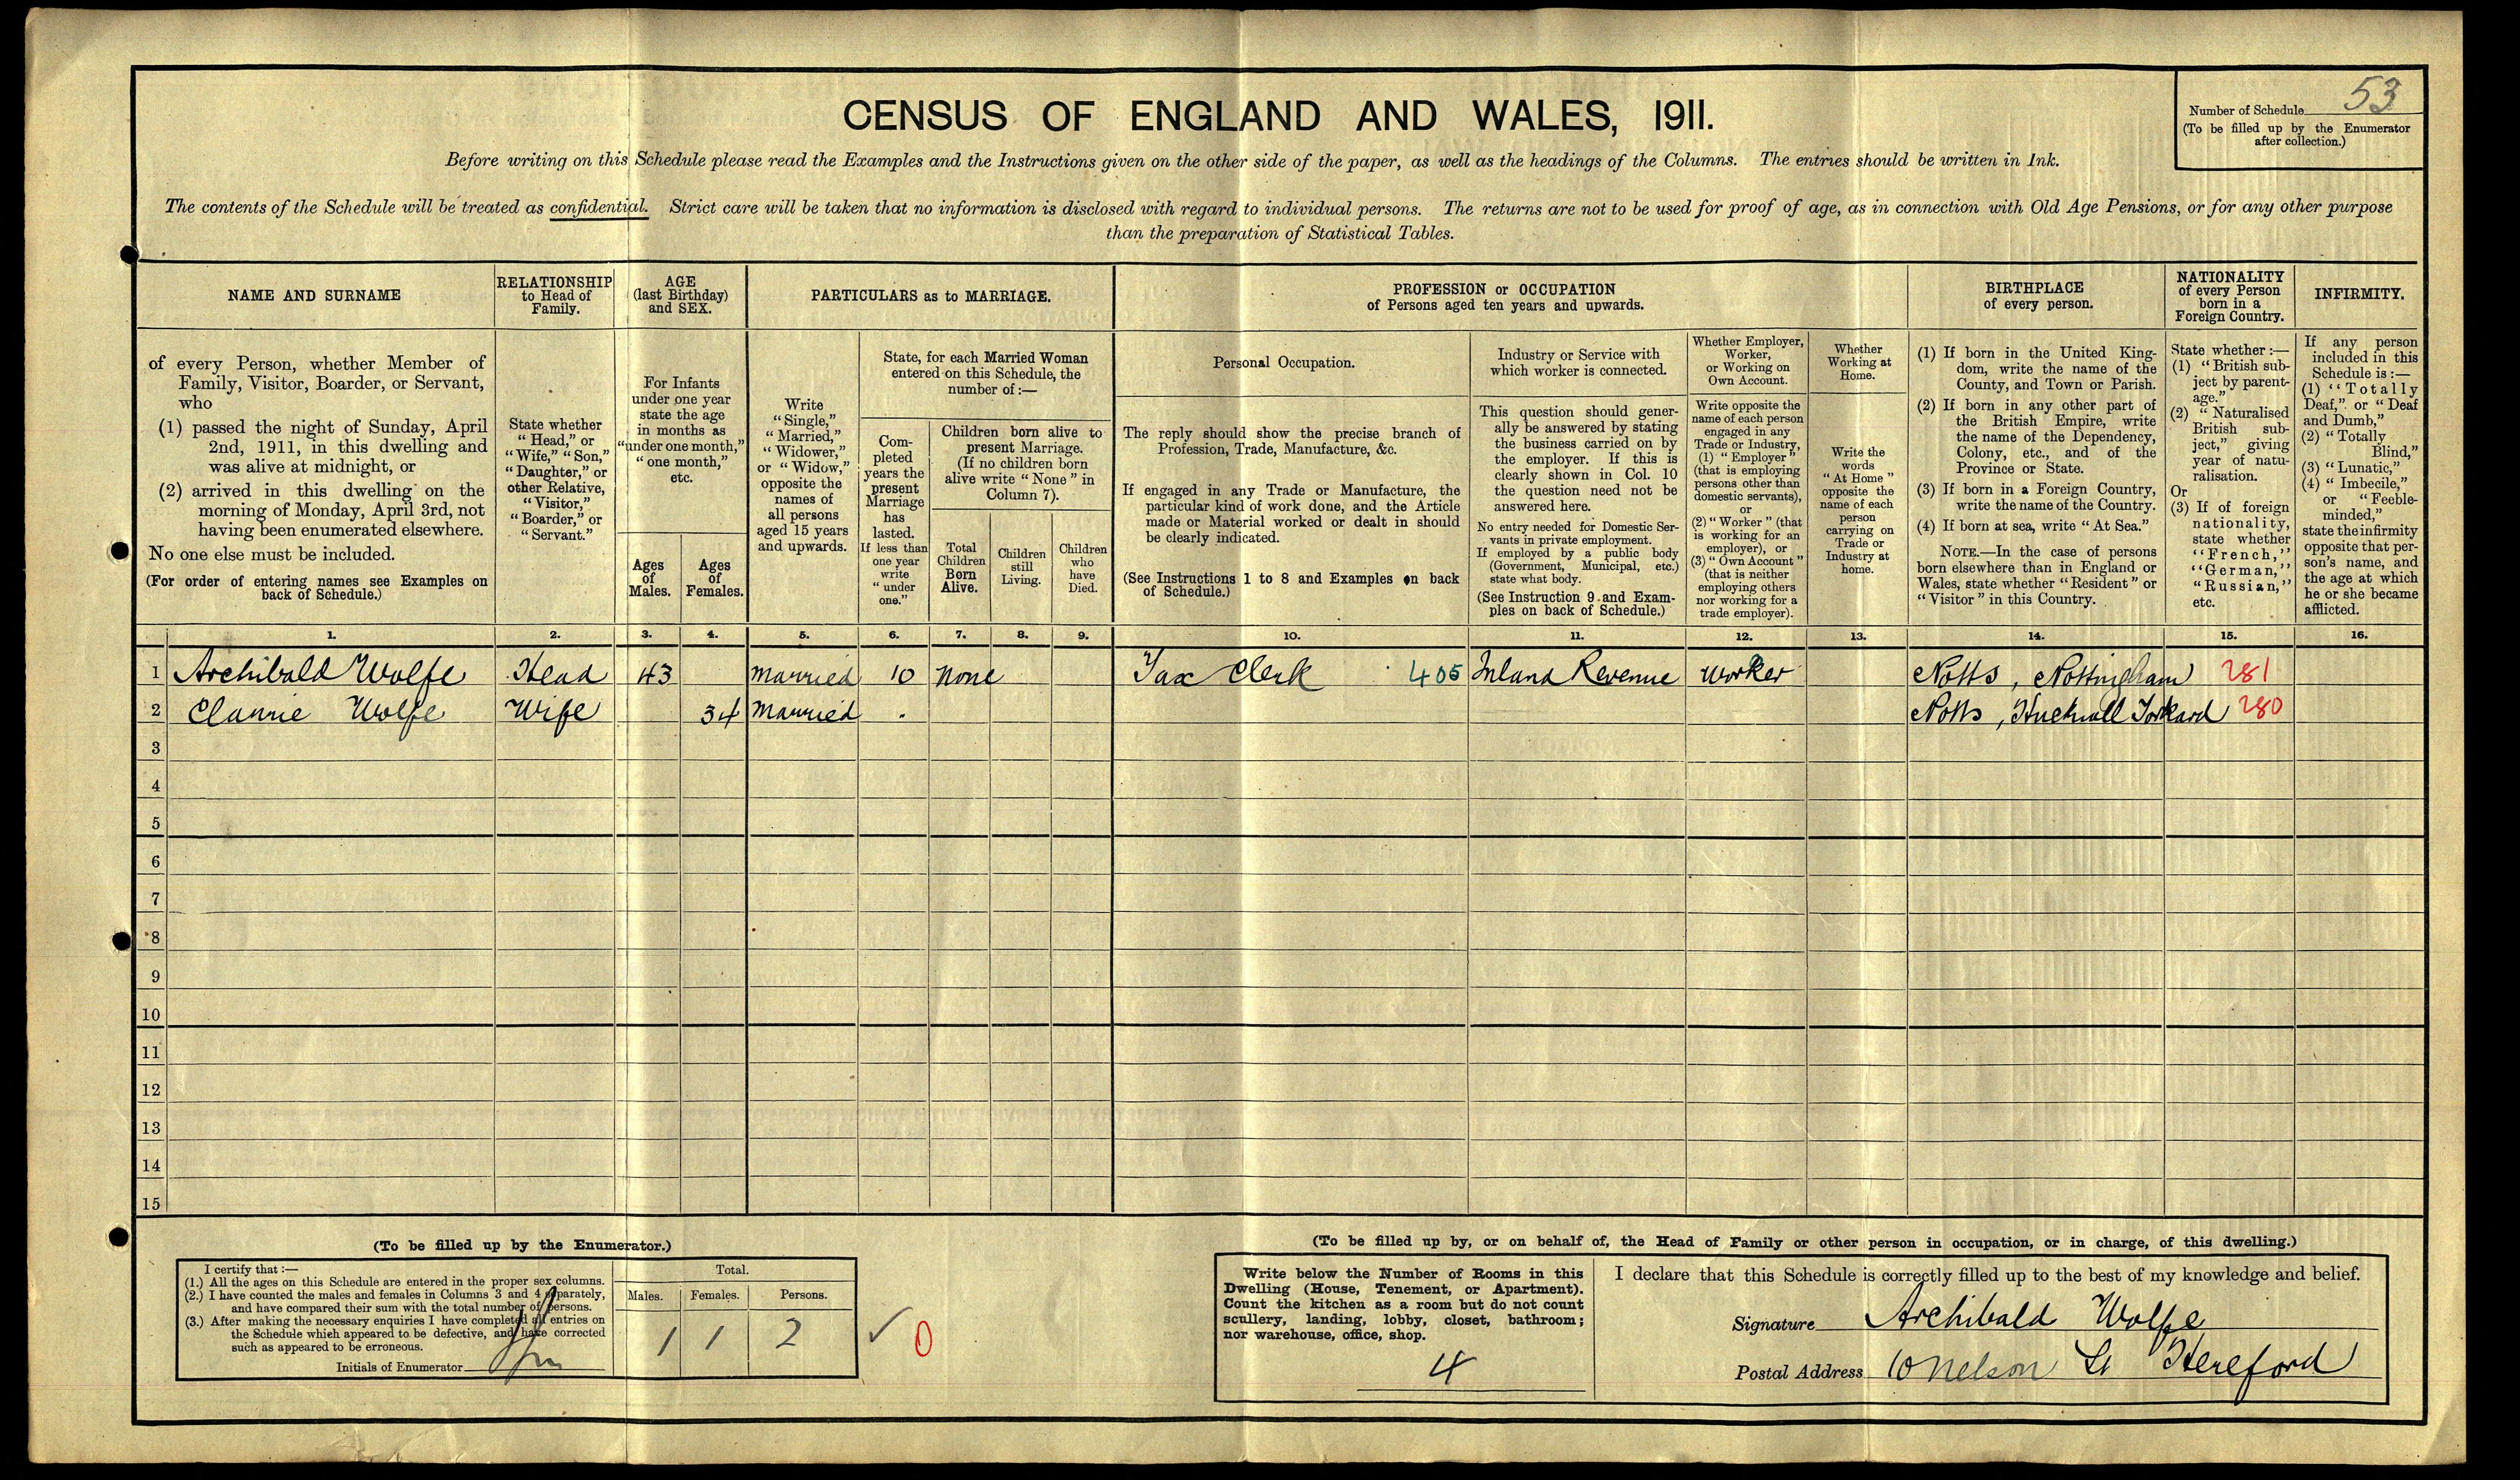 53
Number of Schedule
(To be filled up by the Enumerator
after collection.)
CENSUS OF ENGLAND AND WALES, 1911.
Before writing on this Schedule please read the Examples and the Instructions given on the other side of the paper, as well as the headings of the Columns. The entries should be written in Ink.
The contents of the Schedule will be treated as confidential. Strict care will be taken that no information is disclosed with regard to individual persons. The returns are not to be used for proof of age, as in connection with Old Age Pensions, or for any other purpose
than the preparation of Statistical Tables.
NAME AND SURNAME
of every Person, whether Member of
Family, Visitor, Boarder, or Servant,
who
(1) passed the night of Sunday, April
2nd, 1911, in this dwelling and
was alive at midnight, or
(2) arrived in this dwelling on the
morning of Monday, April 3rd, not
having been enumerated elsewhere.
No one else must be included.
(For order of entering names see Examples on
back of Schedule.)
RELATIONSHIP
to Head of
Family.
State whether
"Head," or
"Wife," "Son,"
"Daughter," or
other Relative,
"Visitor,"
"Boarder," or
"Servant."
AGE
(last Birthday)
and SEX.
For Infants
under one year
state the age
in months as
"under one month,"
"one month,"
etc.
Ages
of
Males.
Ages
of
Females.
PARTICULARS as to MARRIAGE.
Write
"Single,"
"Married,"
"Widower,"
or "Widow,"
opposite the
names of
all persons
aged 15 years
and upwards.
State, for each Married Woman
entered on this Schedule, the
number of:—
Com-
pleted
years the
present
Marriage
has
lasted.
If less than
one year
write
"under
one."
Children born alive to
present Marriage.
(If no children born
alive write "None" in
Column 7).
Total
Children
Born
Alive.
Children
still
Living.
Children
who
have
Died.
PROFESSION or OCCUPATION
of Persons aged ten years and upwards.
Personal Occupation.
The reply should show the precise branch of
Profession, Trade, Manufacture, &c.
If engaged in any Trade or Manufacture, the
particular kind of work done, and the Article
made or Material worked or dealt in should
be clearly indicated.
(See Instructions 1 to 8 and Examples on back
of Schedule.)
Industry or Service with
which worker is connected.
This question should gener-
ally be answered by stating
the business carried on by
the employer. If this is
clearly shown in Col. 10
the question need not be
answered here.
No entry needed for Domestic Ser-
vants in private employment.
If employed by a public body
(Government, Municipal, etc.)
state what body.
(See Instruction 9 and Exam-
ples on back of Schedule.)
Whether Employer,
Worker,
or Working on
Own Account.
Write opposite the
name of each person
engaged in any
Trade or Industry,
(1) "Employer"
(that is employing
persons other than
domestic servants),
or
(2) "Worker" (that
is working for an
employer), or
(3) "Own Account"
(that is neither
employing others
nor working for a
trade employer).
Whether
Working at
Home.
Write the
words
"At Home"
opposite the
name of each
person
carrying on
Trade or
Industry at
home.
BIRTHPLACE
of every person.
(1) If born in the United King-
dom, write the name of the
County, and Town or Parish.
(2) If born in any other part of
the British Empire, write
the name of the Dependency,
Colony, etc., and of the
Province or State.
(3) If born in a Foreign Country,
write the name of the Country.
(4) If born at sea, write "At Sea."
NOTE.—In the case of persons
born elsewhere than in England or
Wales, state whether "Resident" or
"Visitor" in this Country.
NATIONALITY
of every Person
born in a
Foreign Country.
State whether:—
(1) "British sub-
ject by parent-
age."
(2) "Naturalised
British sub-
ject," giving
year of natu-
ralisation.
Or
(3) If of foreign
nationality,
state whether
"French,"
"German,"
"Russian,"
etc.
INFIRMITY.
If any person
included in this
Schedule is:—
(1) "Totally
Deaf," or "Deaf
and Dumb,"
(2) "Totally
Blind,"
(3) "Lunatic,"
(4) "Imbecile,"
or "Feeble-
minded,"
state the infirmity
opposite that per-
son's name, and
the age at which
he or she became
afflicted.
1. 2. 3. 4. 5. 6. 7. 8. 9. 10. 11. 12. 13. 14. 15. 16.
1 Archibald Wolfe Head 43 Married 10 None Tax Clerk 405 Inland Revenue Worker Notts, Nottingham 281
2 Clannie Wolfe Wife 34 Married Notts, Hucknall Torkard 280
3
4
5
6
7
8
9
10
11
12
13
14
15
(To be filled up by the Enumerator.)
I certify that:—
(1.) All the ages on this Schedule are entered in the proper sex columns.
(2.) I have counted the males and females in Columns 3 and 4 separately,
and have compared their sum with the total number of persons.
(3.) After making the necessary enquiries I have completed all entries on
the Schedule which appeared to be defective, and have corrected
such as appeared to be erroneous.
Initials of Enumerator
Total.
Males. Females. Persons.
1 1 2
0
(To be filled up by, or on behalf of, the Head of Family or other person in occupation, or in charge, of this dwelling.)
Write below the Number of Rooms in this
Dwelling (House, Tenement, or Apartment).
Count the kitchen as a room but do not count
scullery, landing, lobby, closet, bathroom;
nor warehouse, office, shop.
4
I declare that this Schedule is correctly filled up to the best of my knowledge and belief.
Signature Archibald Wolfe
Postal Address 10 Nelson St Hereford